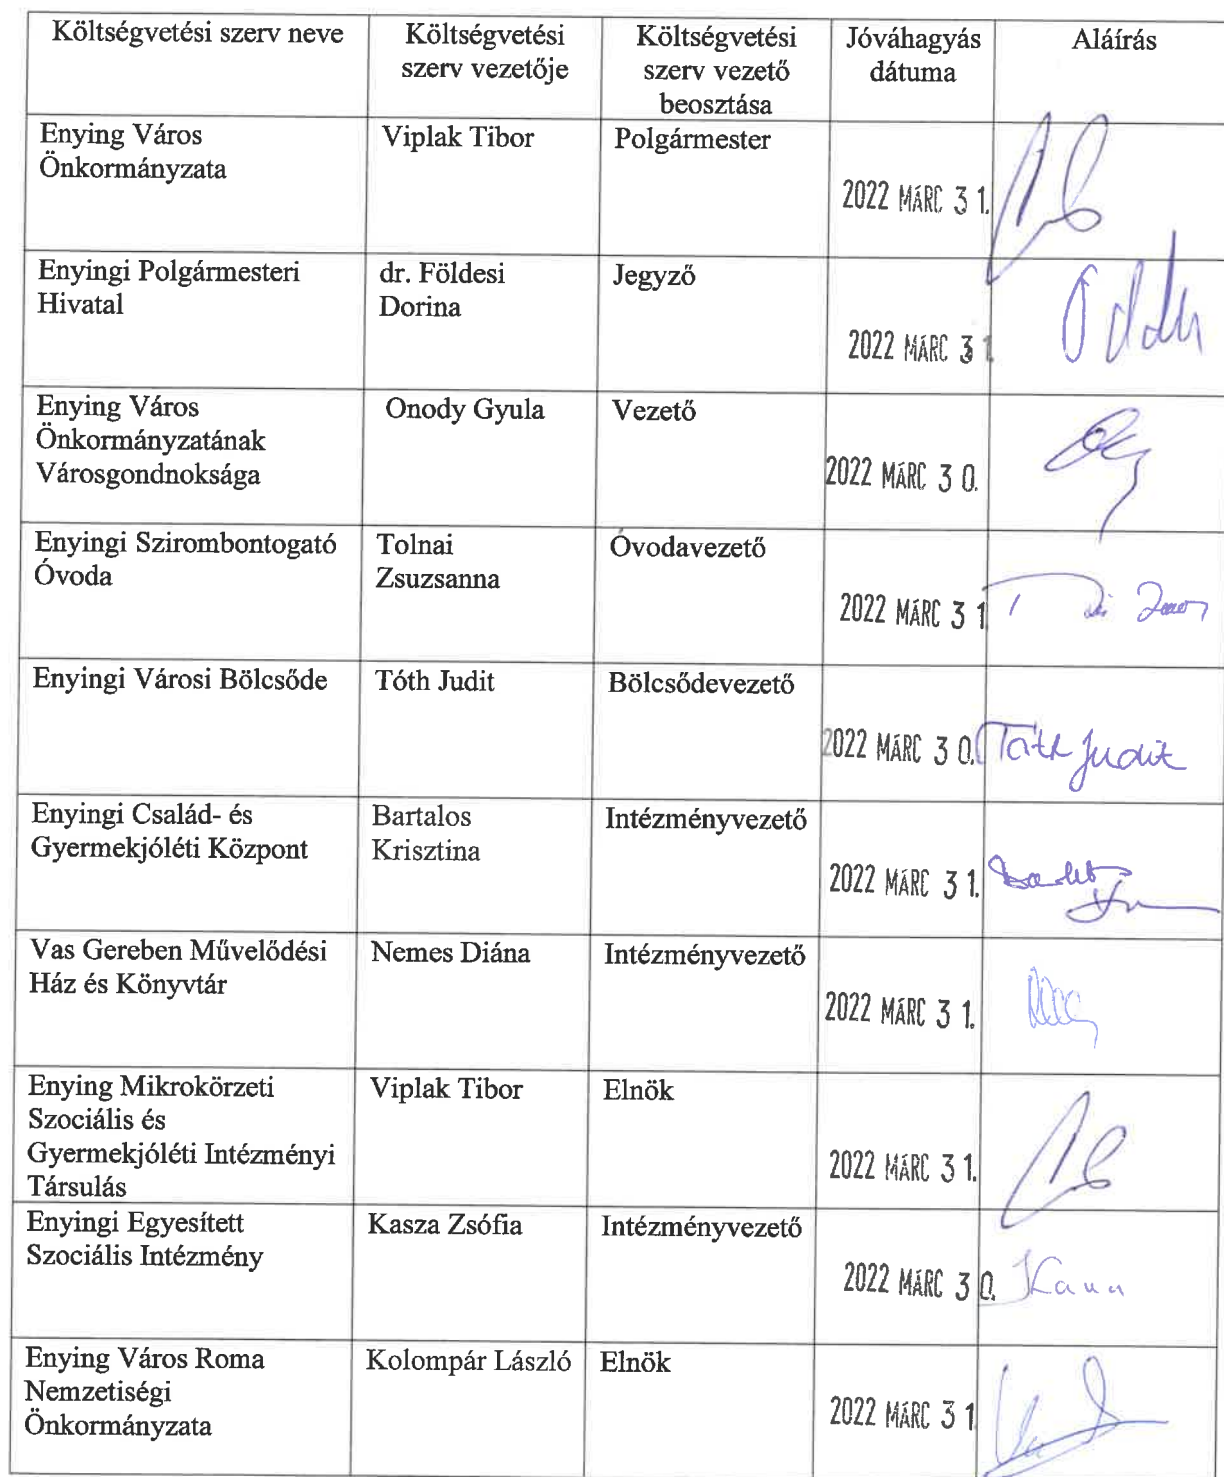 Költségvetési szerv neve
Költségvetési
szerv vezetője
Költségvetési
szerv vezető
beosztása
Jóváhagyás
dátuma
Aláírás
Enying Város
Önkormányzata
Viplak Tibor
Polgármester
2022 MÁRC 31.
Enyingi Polgármesteri
Hivatal
dr. Földesi
Dorina
Jegyző
2022 MÁRC 31
Enying Város
Önkormányzatának
Városgondnoksága
Onody Gyula
Vezető
2022 MÁRC 30.
Enyingi Szirombontogató
Óvoda
Tolnai
Zsuzsanna
Óvodavezető
2022 MÁRC 31
Enyingi Városi Bölcsőde
Tóth Judit
Bölcsődevezető
2022 MÁRC 30.
Tóth Judit
Enyingi Család- és
Gyermekjóléti Központ
Bartalos
Krisztina
Intézményvezető
2022 MÁRC 31.
Vas Gereben Művelődési
Ház és Könyvtár
Nemes Diána
Intézményvezető
2022 MÁRC 31.
Enying Mikrokörzeti
Szociális és
Gyermekjóléti Intézményi
Társulás
Viplak Tibor
Elnök
2022 MÁRC 31.
Enyingi Egyesített
Szociális Intézmény
Kasza Zsófia
Intézményvezető
2022 MÁRC 30.
Enying Város Roma
Nemzetiségi
Önkormányzata
Kolompár László
Elnök
2022 MÁRC 31